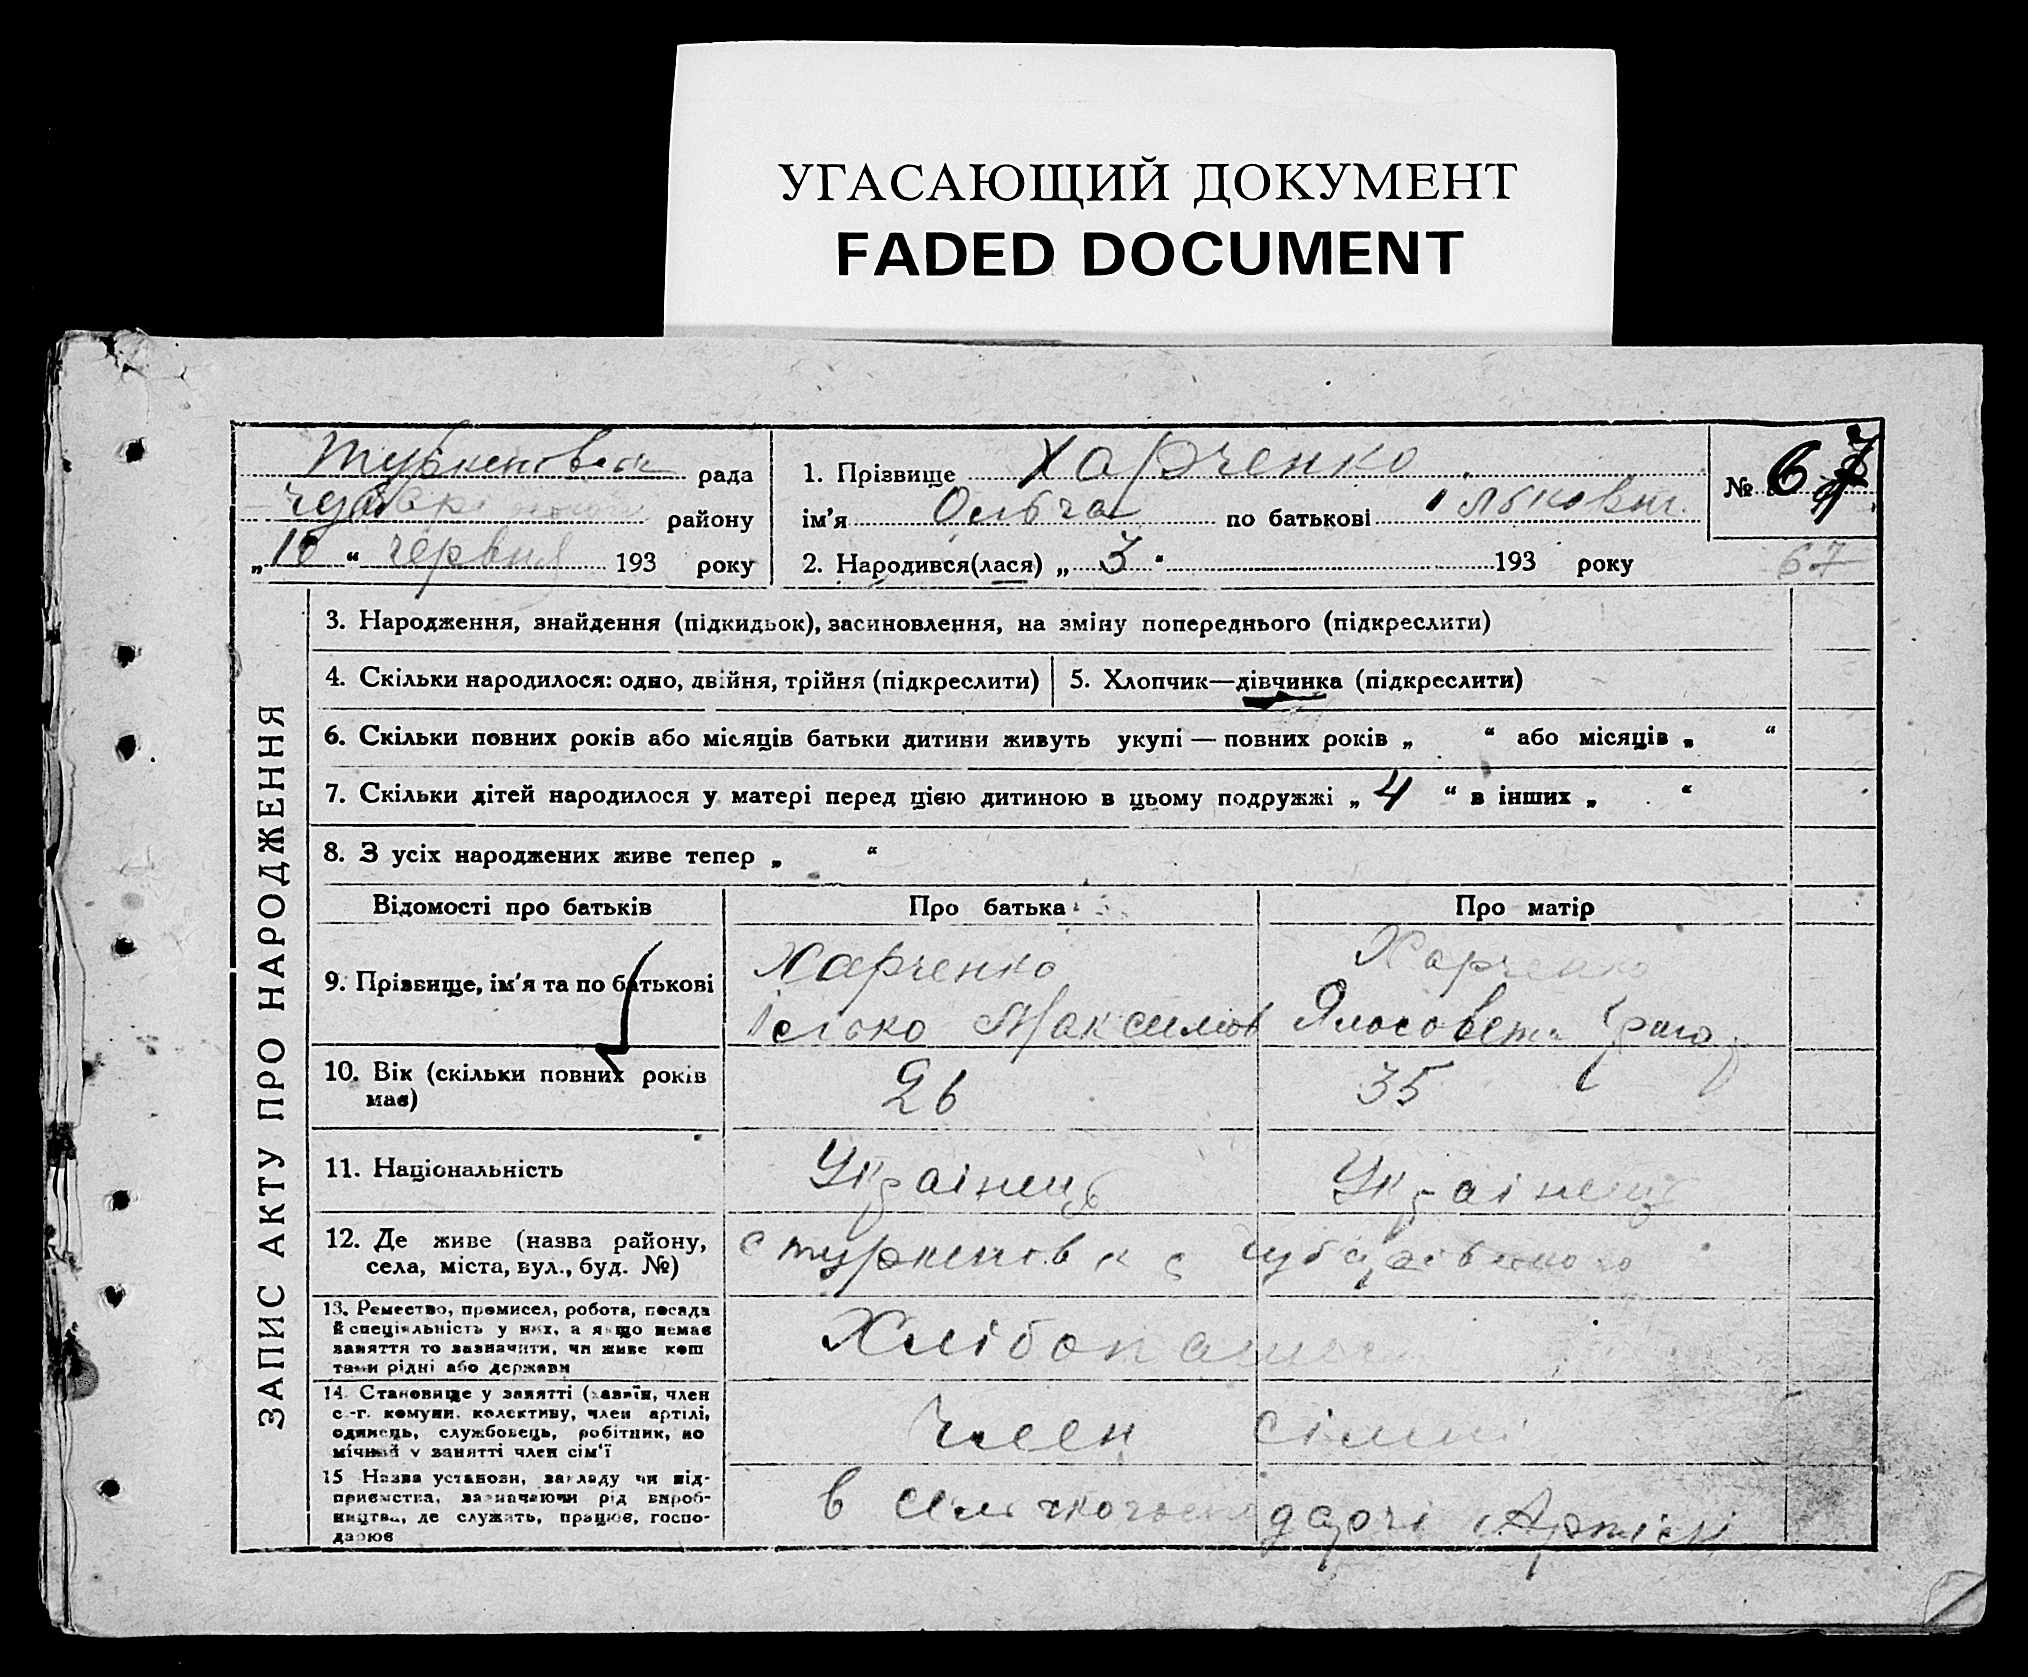 УГАСАЮЩИЙ ДОКУМЕНТ
FADED DOCUMENT
рада
району
„10 “ червня 193 року
1. Прізвище Харченко
ім'я Ольга по батькові
2. Народився(лася) „ 3 “ 193 року
№ 67
67
ЗАПИС АКТУ ПРО НАРОДЖЕННЯ
3. Народження, знайдення (підкидьок), засиновлення, на зміну попереднього (підкреслити)
4. Скільки народилося: одно, двійня, трійня (підкреслити)
5. Хлопчик—дівчинка (підкреслити)
6. Скільки повних років або місяців батьки дитини живуть укупі — повних років „ “ або місяців „ “
7. Скільки дітей народилося у матері перед цією дитиною в цьому подружжі „ 4 “ в інших „ “
8. З усіх народжених живе тепер „ “
Відомості про батьків
Про батька
Про матір
9. Прізвище, ім'я та по батькові
Харченко
Харченко
Максимов
10. Вік (скільки повних років має)
26
35
11. Національність
Украінець
Украінець
12. Де живе (назва району,
села, міста, вул., буд. №)
13. Ремество, промисел, робота, посада
й спеціяльність у них, а якщо немає
заняття то зазначити, чи живе кош
тами рідні або держави
14. Становище у занятті (хазяїн, член
с.-г. комуни, колективу, член артілі,
одинець, службовець, робітник, по
мічний у занятті член сім'ї
Член сімі
15 Назва установи, закладу чи під-
приємства, зазначаючи рід вироб-
ництва, де служить, працює, госпо-
дарює
в